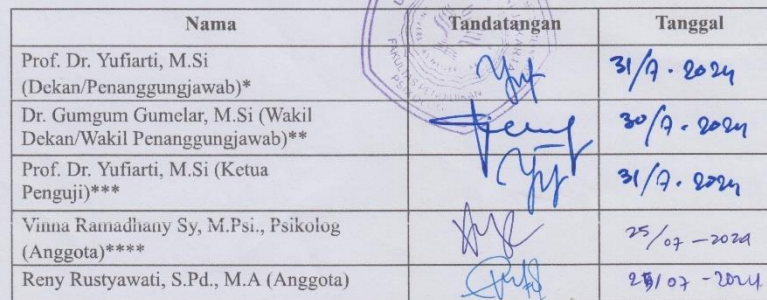 Nama Tandatangan Tanggal
Prof. Dr. Yufiarti, M.Si
(Dekan/Penanggungjawab)* 31/7 - 2024
Dr. Gumgum Gumelar, M.Si (Wakil
Dekan/Wakil Penanggungjawab)** 30/7 - 2024
Prof. Dr. Yufiarti, M.Si (Ketua
Penguji)*** 31/7 - 2024
Vinna Ramadhany Sy, M.Psi., Psikolog
(Anggota)**** 25/07 - 2024
Reny Rustyawati, S.Pd., M.A (Anggota) 25/07 - 2024